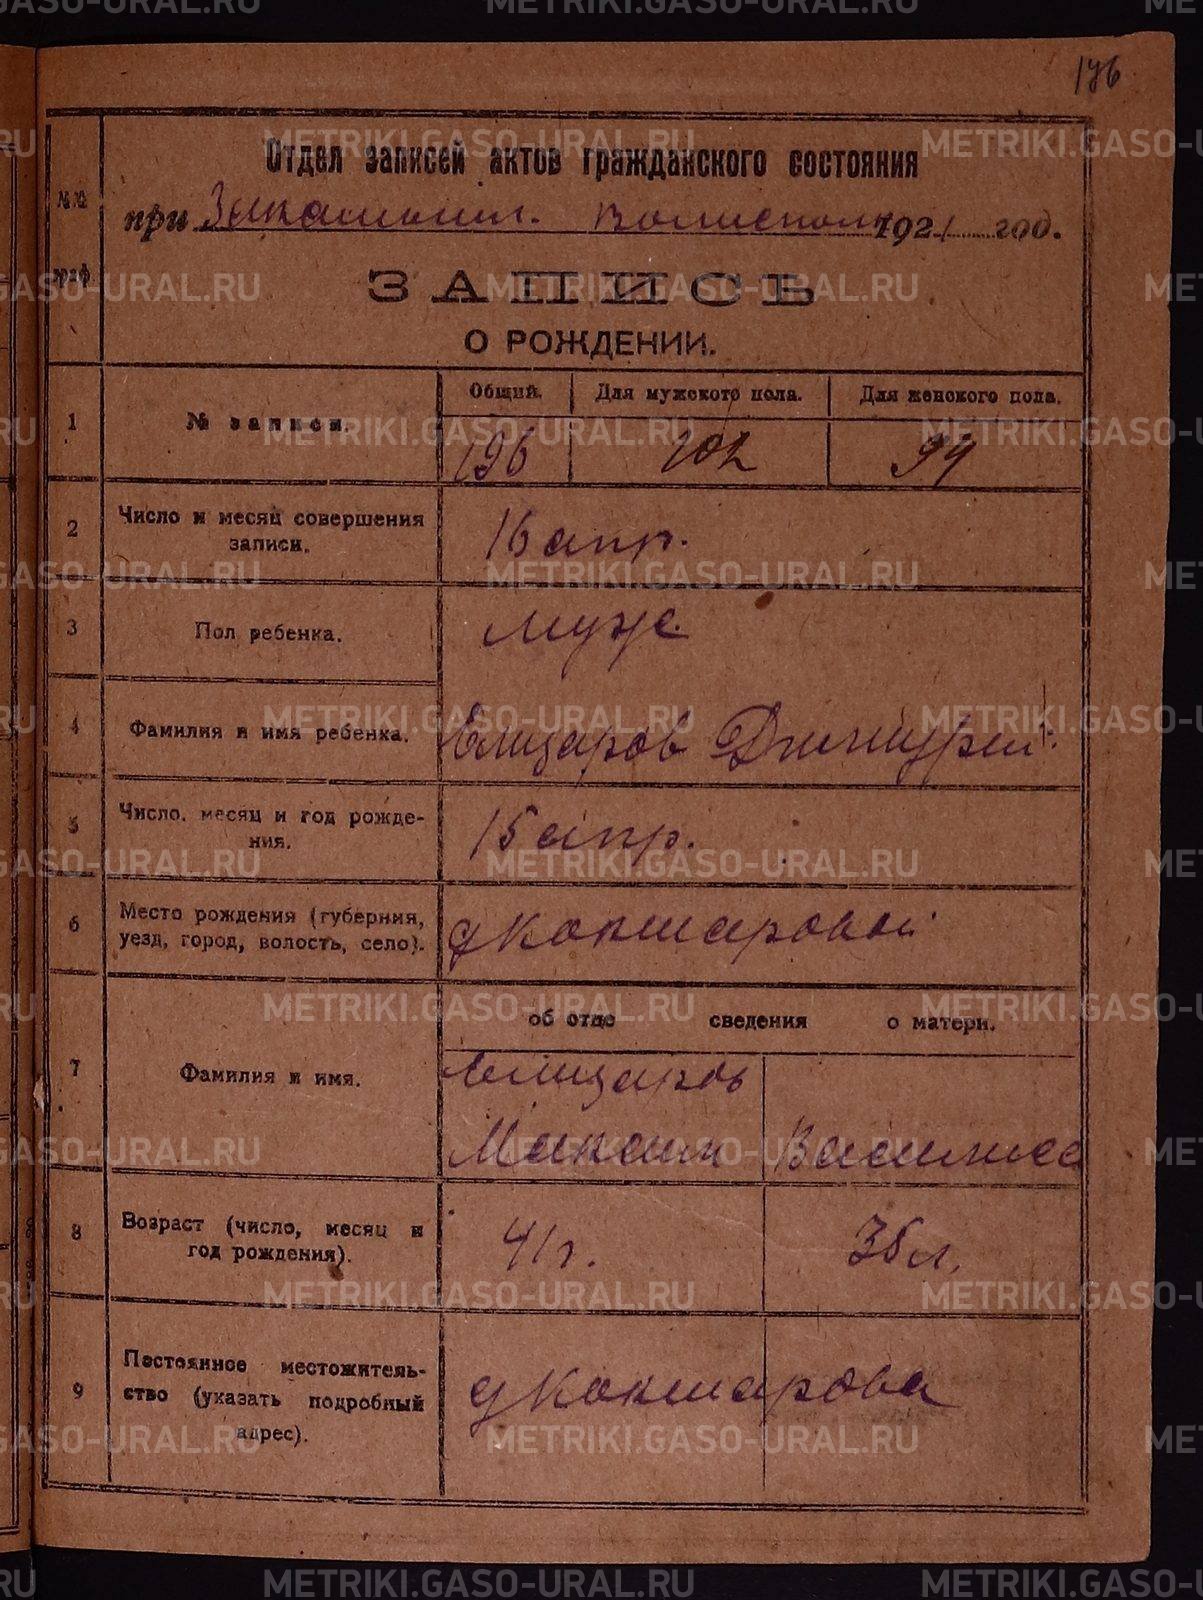 196
Отдел записей актов гражданского состояния
№№ граф.
при Волисполк. 1921 год.
ЗАПИСЬ
О РОЖДЕНИИ.
1 № записи. Общий. Для мужского пола. Для женского пола.
196 102 94
2 Число и месяц совершения записи. 16 апр.
3 Пол ребенка. муж.
4 Фамилия и имя ребенка. Елизаров Дмитрий
5 Число, месяц и год рождения. 15 апр.
6 Место рождения (губерния, уезд, город, волость, село). д Кокшаровой
об отце сведения о матери.
7 Фамилия и имя. Елизаров
Максим Василиса
8 Возраст (число, месяц и год рождения). 41 г. 36 л.
9 Постоянное местожительство (указать подробный адрес). д Кокшарова
METRIKI.GASO-URAL.RU